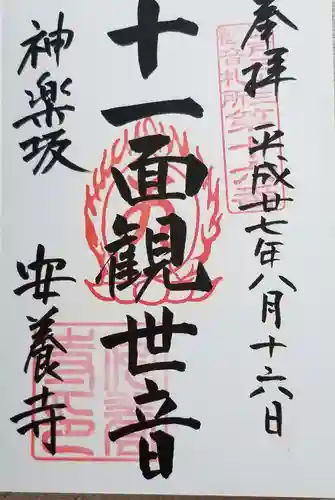 奉拝 平成廿七年八月十六日
十一面観世音
神楽坂 安養寺